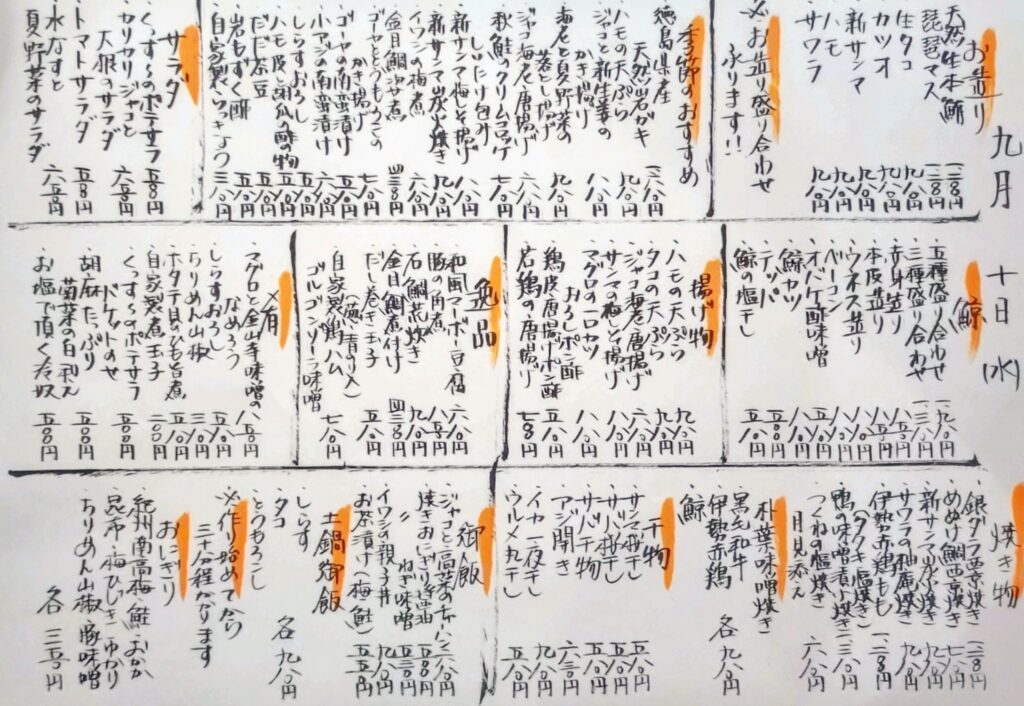 九月 十日 水
お造り
天然生本鮪
琵琶マス
生タコ
カツオ 九八〇円
新サンマ 九八〇円
ハモ 九八〇円
サワラ 九八〇円
※お造り盛り合わせ
承ります!!
季節のおすすめ
徳島県産
天然岩ガキ
ハモの天ぷら 九八〇円
ジャコと新生姜の
かき揚げ 八八〇円
海老と夏野菜の
落とし揚げ 九八〇円
ジャコ海老唐揚げ 六八〇円
秋鮭のクリームコロッケ 七八〇円
しいたけ包み
新サンマ梅しそ揚げ 八八〇円
新サンマ炭火焼き 九八〇円
イワシの梅煮 六八〇円
金目鯛かぶと煮
ゴーヤととうもろこしの
かき揚げ 七八〇円
ゴーヤの南蛮漬け
小アジの南蛮漬け
しらすおろし
ハモ皮と胡瓜の酢の物
だだ茶豆
岩もずく酢
自家製らっきょう
サラダ
くっすぅのポテサラ 五八〇円
カリカリジャコと
大根のサラダ 六八〇円
トマトサラダ 五八〇円
水なすと
夏野菜のサラダ 六八〇円
鯨
五種盛り合わせ
三種盛り合わせ
赤身造り
本皮造り
ウネス造り
ベーコン
オバケ酢味噌
鯨カツ
テッパ
鯨の塩干し
揚げ物
ハモの天ぷら 九八〇円
タコの天ぷら 九八〇円
ジャコ海老唐揚げ 六八〇円
サンマの梅しそ揚げ 八八〇円
マグロの一口カツ 八八〇円
おろしポン酢
鶏皮唐揚げポン酢 五八〇円
若鶏の唐揚げ 七八〇円
逸品
和風マーボー豆腐 六八〇円
豚の角煮 八八〇円
石鯛荒炊き 九八〇円
金目鯛煮付け
だし巻き玉子 五八〇円
(葱・青のり入)
自家製鶏ハム 七八〇円
ゴルゴンゾーラ味噌
肴
マグロと金山寺味噌の
なめろう 八八〇円
しらすおろし 五八〇円
ちりめん山椒 三八〇円
ホタテ貝ひも旨煮 五八〇円
自家製煮玉子 二〇〇円
くっすぅのポテサラ
バケットのせ
胡麻たっぷり
菊菜の白和え 五八〇円
お塩で頂く冷奴 五八〇円
焼き物
銀ダラ西京焼き
めぬけ鯛西京焼き
新サンマ炭火焼き 九八〇円
サワラの柚庵焼き 九八〇円
伊勢赤鶏もも
(タタキ・塩焼き)
鴨の味噌漬け焼き
つくねの塩焼き 六八〇円
月見添え
朴葉味噌焼き
黒毛和牛
伊勢赤鶏
鯨
各 九八〇円
干物
サンマ桜干し
サバ桜干し
サバ干物
アジ開き
イカ一夜干し 九八〇円
ウルメ丸干し 五八〇円
御飯
ジャコと高菜のチャーハン 八八〇円
焼きおにぎり 醤油
〃 ねぎ味噌
イワシの親子丼 九八〇円
お茶漬け(梅・鮭) 五五〇円
土鍋御飯
しらす
タコ
とうもろこし
各 九八〇円
※作り始めてから
三十分程かかります
おにぎり
紀州南高梅・鮭・おかか
昆布・梅ひじき・ゆかり
ちりめん山椒・豚味噌
各 三五〇円